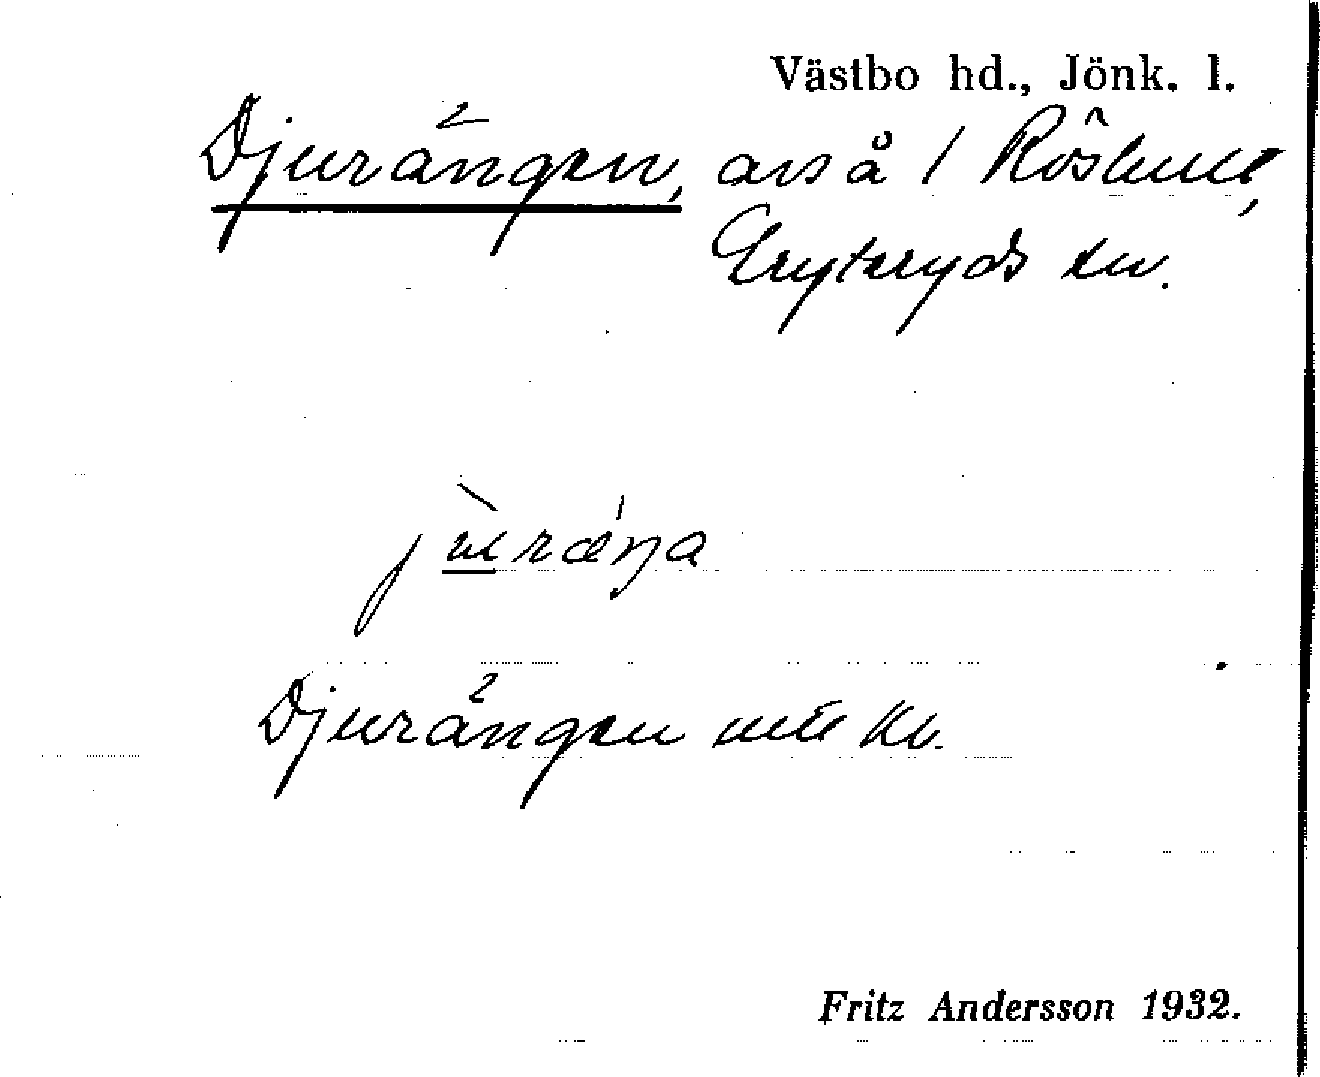 Västbo hd., Jönk. l.
Djurängen, avs å 1 Röshult,
Gryteryds sn.
jùrǽŋa
Djurängen
Fritz Andersson 1932.